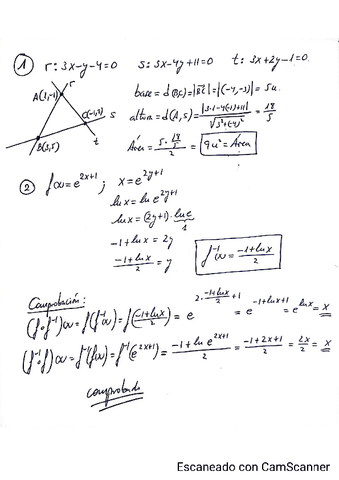 ① r: 3x-y-4=0   s: 3x-4y+11=0   t: 3x+2y-1=0
r
A(1,-1)
C(-1,2)
s
B(3,5)
t
base = d(B,C) = |BC| = |(-4,-3)| = 5u.
altura = d(A,s) = |3·1-4(-1)+11| / √(3²+(-4)²) = 18/5
Área = (5·18/5)/2 = 9u² = Área
② f(x)=e^(2x+1) ; x=e^(2y+1)
lnx = ln e^(2y+1)
lnx = (2y+1)·ln e
1
-1+lnx = 2y
(-1+lnx)/2 = y   f⁻¹(x) = (-1+lnx)/2
Comprobación:
(f∘f⁻¹)(x) = f(f⁻¹(x)) = f((-1+lnx)/2) = e^(2·(-1+lnx)/2+1) = e^(-1+lnx+1) = e^(lnx) = x
(f⁻¹∘f)(x) = f⁻¹(f(x)) = f⁻¹(e^(2x+1)) = (-1+ln e^(2x+1))/2 = (-1+2x+1)/2 = 2x/2 = x
comprobado
Escaneado con CamScanner